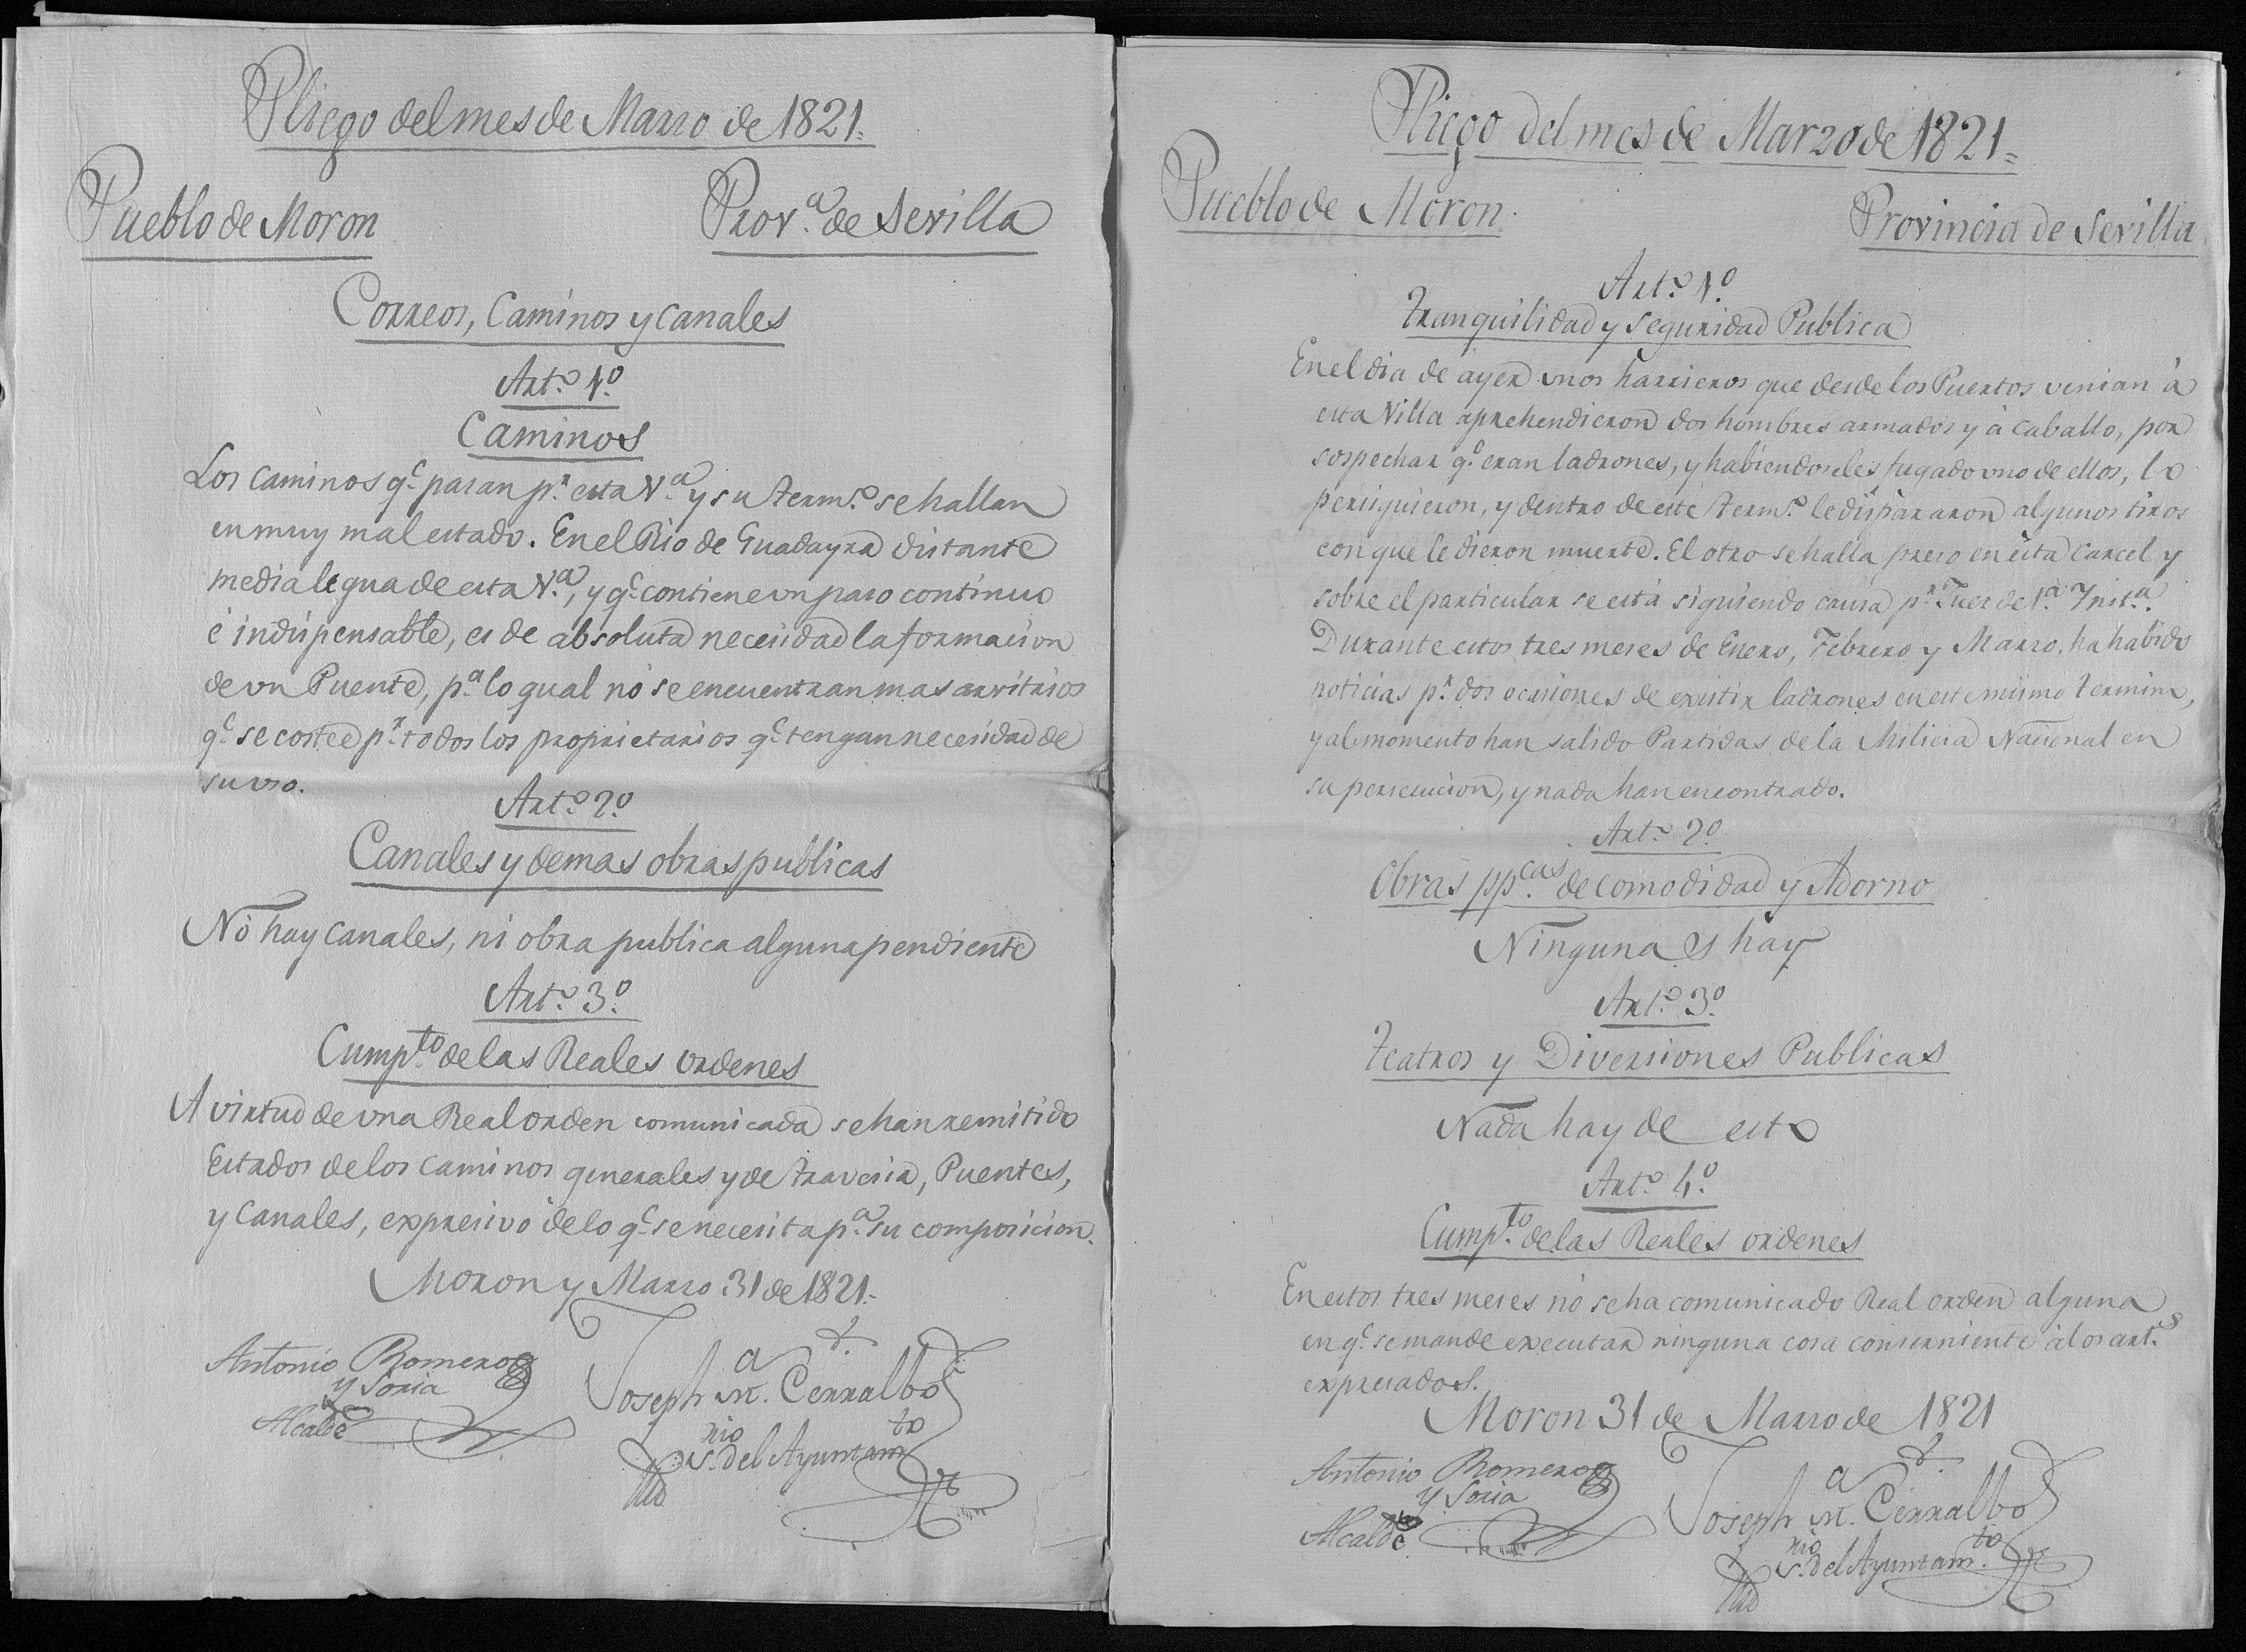 Pliego del mes de Marzo de 1821.=
Pueblo de Moron
Prov.ª de Sevilla
Correos, Caminos y Canales
Art.º 1.º
Caminos
Los Caminos q.e pasan p.r esta V.ª y su term.º se hallan
en muy mal estado. En el Rio de Guadayra distante
media legua de esta V.ª, y q.e contiene un paso continuo
é indispensable, es de absoluta necesidad la formacion
de un Puente, p.ª lo qual nó se encuentran mas arvitrios
q.e se costee p.r todos los proprietarios q.e tengan necesidad de
su uso.
Art.º 2.º
Canales y demas obras publicas
Nó hay Canales, ni obra publica alguna pendiente
Art.º 3.º
Cump.to de las Reales ordenes
A virtud de una Real orden comunicada se han remitido
Estados de los Caminos generales y de travesia, Puentes,
y Canales, expresivo de lo q.e se necesita p.ª su composicion.
Moron y Marzo 31 de 1821.=
Antonio Romero
y Soria
Alcalde
Joseph M.a Cerralbo
S.rio del Ayuntam.to
Pliego del mes de Marzo de 1821=
Pueblo de Moron.
Provincia de Sevilla
Art.º 1.º
Tranquilidad y Seguridad Publica
En el dia de áyer unos harrieros que desde los Puertos venian á
esta Villa aprehendieron dos hombres armados y á caballo, por
sospechar q.e eran ladrones, y habiendoseles fugado uno de ellos, lo
persiguieron, y dentro de este term.º le dispararon algunos tiros
con que le dieron muerte. El otro se halla preso en esta Carcel y
sobre el particular se está siguiendo causa p.r Juez de 1.ª Inst.ª.
Durante estos tres meses de Enero, Febrero y Marzo, ha habido
noticias p.r dos ocasiones de existir ladrones en este mismo termino,
y al momento han salido Partidas de la Milicia Nacional en
su persecucion, y nada han encontrado.
Art.º 2.º
Obras pp.cas de comodidad y Adorno
Ningunas hay
Art.º 3.º
Teatros y Diversiones Publicas
Nada hay de esto
Art.º 4.º
Cump.to de las Reales ordenes
En estos tres meses nó se ha comunicado Real orden alguna
en q.e se mande executar ninguna cosa conserniente á los art.s
expresados.
Moron 31 de Marzo de 1821
Antonio Romero
y Soria
Alcalde
Joseph M.a Cerralbo
S.rio del Ayuntam.to